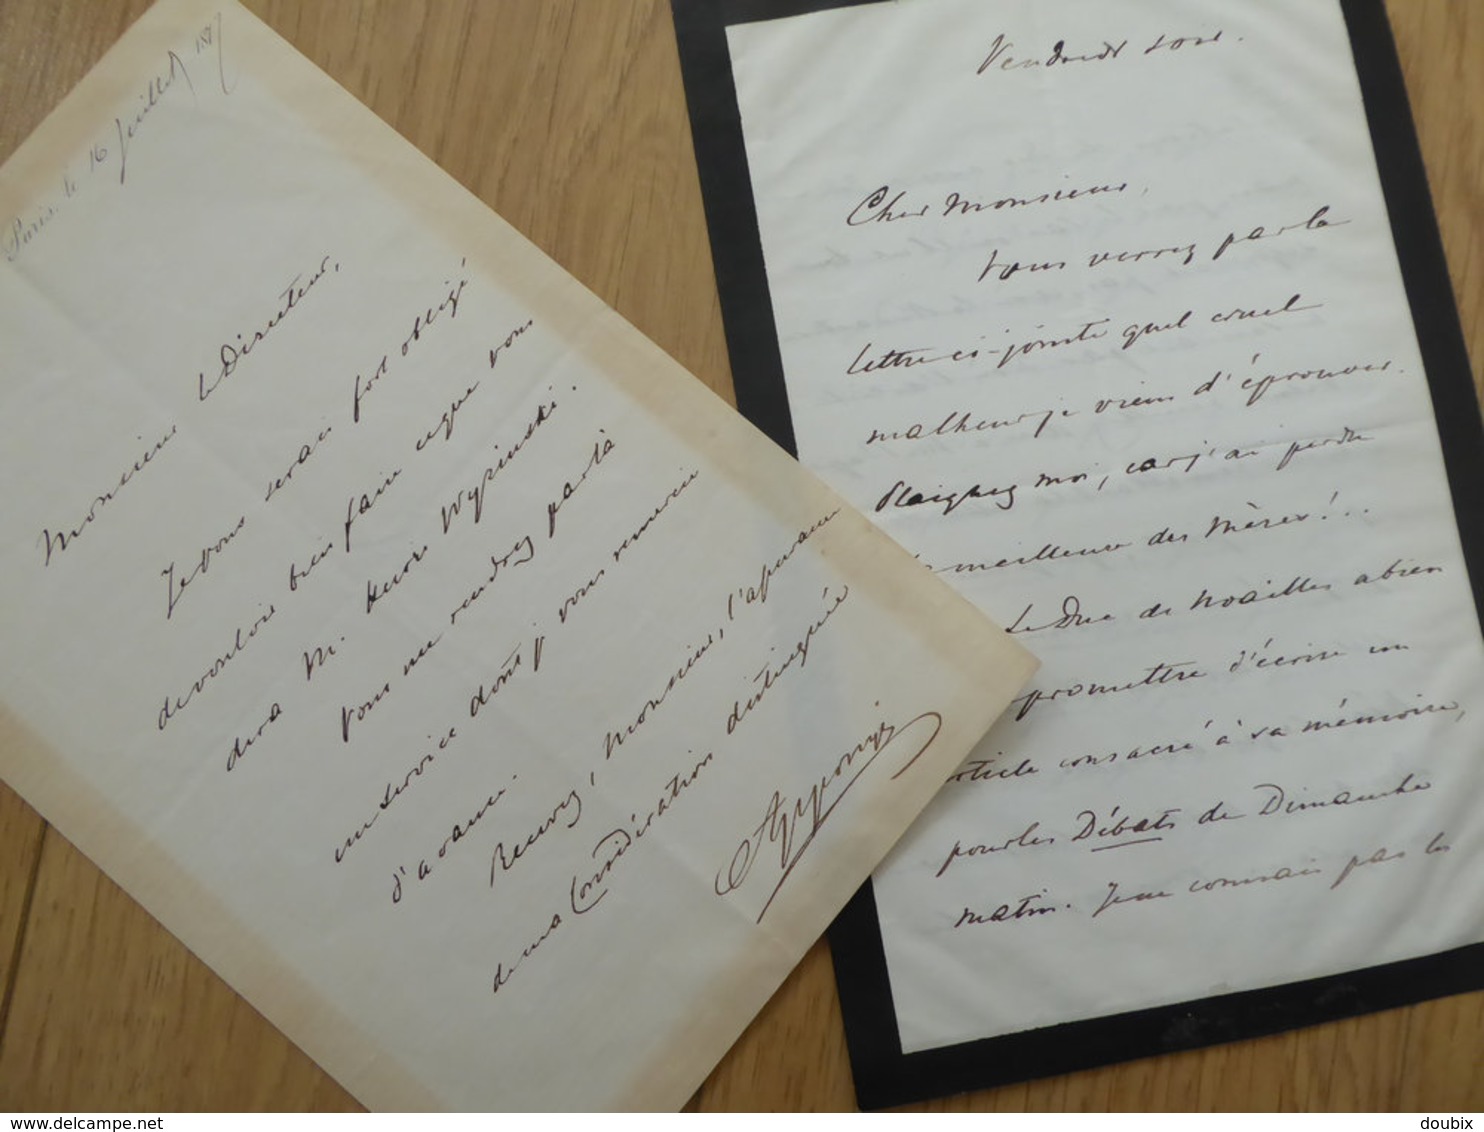 Paris le 16 Juillet 187
Monsieur le Directeur,
Je vous serai fort obligé
de vouloir bien faire ce que vous
dira M. Henri Wyzinski.
Vous me rendrez par là
un service dont je vous remercie
d'avance.
Recevez, Monsieur, l'assurance
de ma Considération distinguée
Apponyi
Vendredi soir.
Cher Monsieur,
Vous verrez par la
lettre ci-jointe quel cruel
malheur je viens d'éprouver.
Plaignez moi, car j'ai perdu
la meilleure des Mères!..
Le Duc de Noailles a bien
promettre d'écrire un
article consacré à sa mémoire,
pour les Débats de Dimanche
matin. Je ne connais pas les
www.delcampe.net
doubix